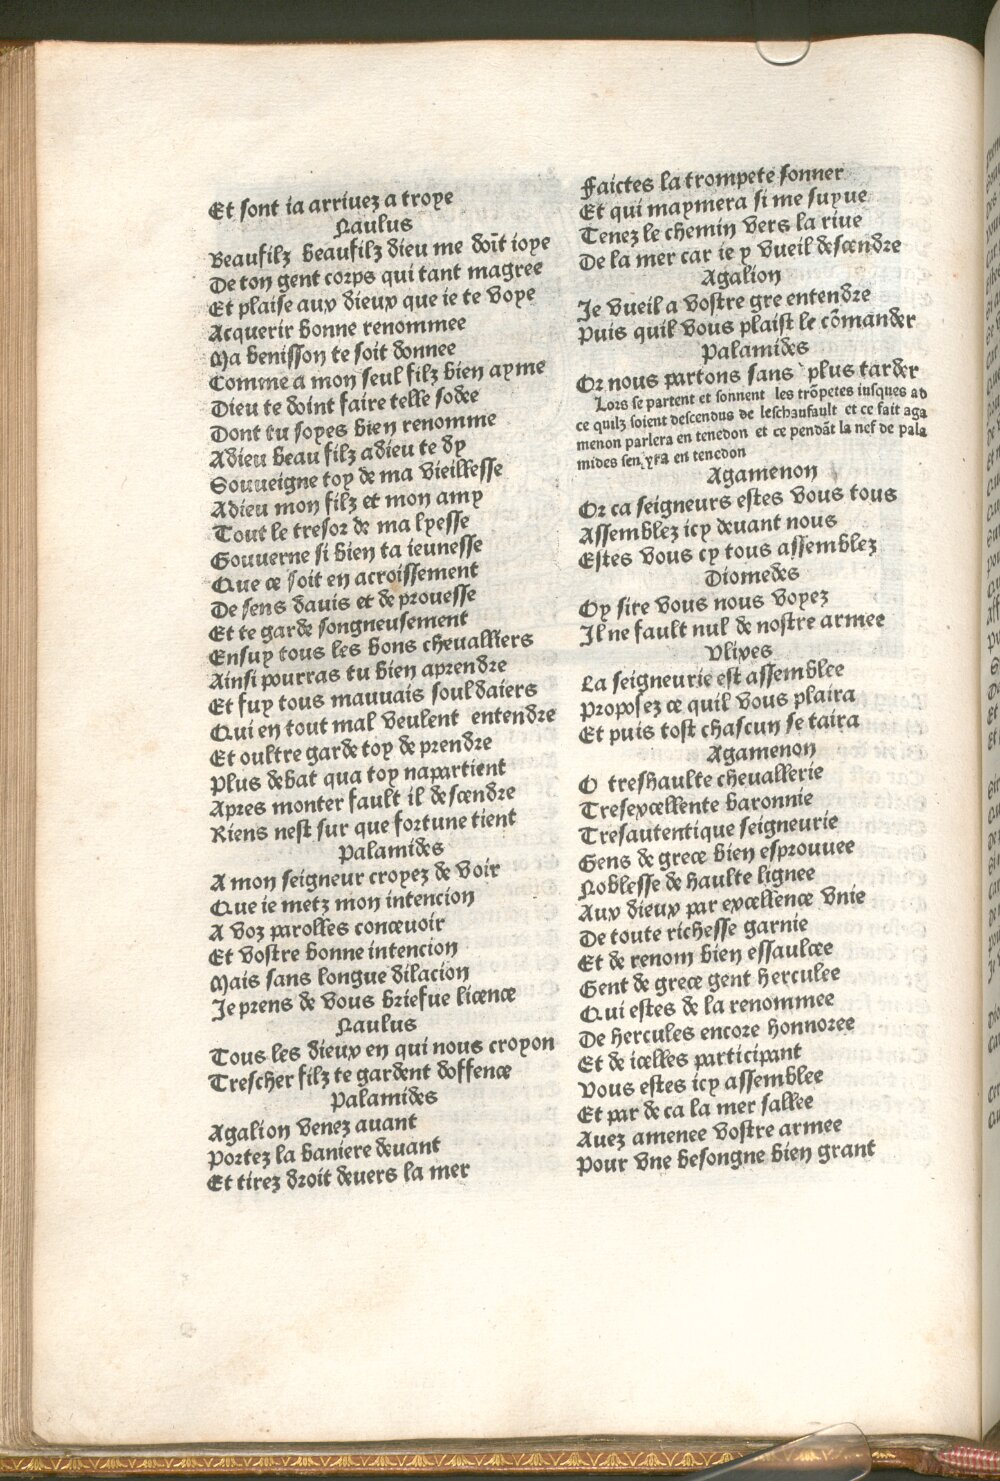 Et sont ia arriuez a troye
Naulus
Beaufilz beaufilz dieu me doīt ioye
De ton gent corps qui tant magree
Et plaise aux dieux que ie te voye
Acquerir bonne renommee
Ma benisson te soit donnee
Comme a mon seul filz bien ayme
Dieu te doint faire telle sodee
Dont tu soyes bien renomme
Adieu beau filz adieu te dy
Souueigne toy de ma vieillesse
Adieu mon filz et mon amy
Tout le tresor de ma lyesse
Gouuerne si bien ta ieunesse
Que ce soit en acroissement
De sens dauis et de prouesse
Et te garde songneusement
Ensuy tous les bons chevalliers
Ainsi pourras tu bien aprendre
Et fuy tous mauuais souldaiers
Qui en tout mal veulent entendre
Et oultre garde toy de prendre
Plus debat qua toy napartient
Apres monter fault il descendre
Riens nest sur que fortune tient
Palamides
A mon seigneur croyez de voir
Que ie metz mon intencion
A voz parolles conceuoir
Et vostre bonne intencion
Mais sans longue dilacion
Je prens de vous briefue licence
Naulus
Tous les dieux en qui nous croyon
Trescher filz te gardent doffence
Palamides
Agalion venez auant
Portez la baniere deuant
Et tirez droit deuers la mer
Faictes la trompete sonner
Et qui maymera si me suyue
Tenez le chemin vers la riue
De la mer car ie y vueil descendre
Agalion
Je vueil a vostre gre entendre
Puis quil vous plaist le cōmander
Palamides
Or nous partons sans plus tarder
Lors se partent et sonnent les trōpetes iusques ad
ce quilz soient descendus de leschaufault et ce fait aga
menon parlera en tenedon et ce pendāt la nef de pala
mides sen yra en tenedon
Agamenon
Or ca seigneurs estes vous tous
Assemblez icy deuant nous
Estes vous cy tous assemblez
Diomedes
Oy sire vous nous voyez
Il ne fault nul de nostre armee
Vlixes
La seigneurie est assemblee
Proposez ce quil vous plaira
Et puis tost chascun se taira
Agamenon
O treshaulte cheuallerie
Tresexcellente baronnie
Tresautentique seigneurie
Gens de grece bien esprouuee
Noblesse de haulte lignee
Aux dieux par excellence vnie
De toute richesse garnie
Et de renom bien essaulcee
Gent de grece gent herculee
Qui estes de la renommee
De hercules encore honnoree
Et de icelles participant
Vous estes icy assemblee
Et par de ca la mer sallee
Auez amenee vostre armee
Pour vne besongne bien grant